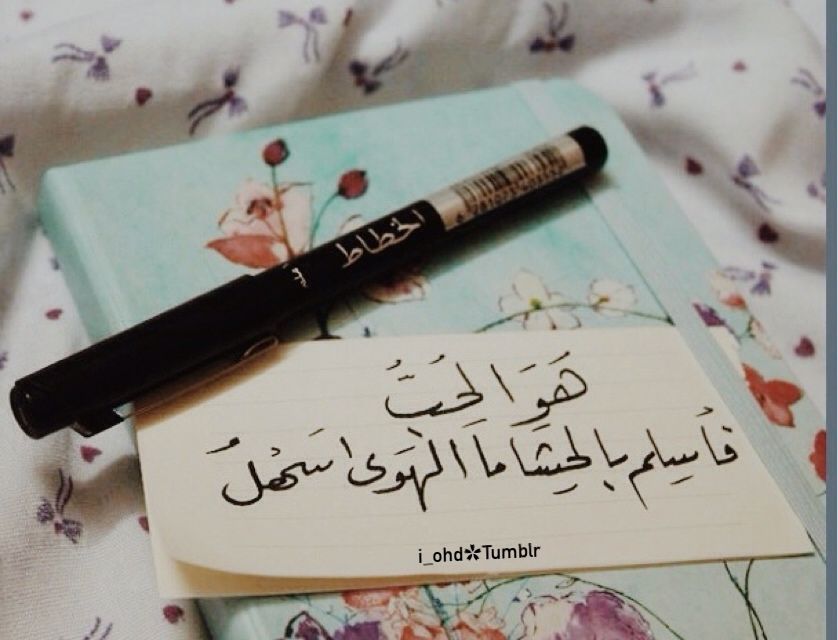 الخطاط
هَوَ الحُبُّ
فأسلم بالحشا ما الهَوى اسَهْلُ
i_ohd✽Tumblr